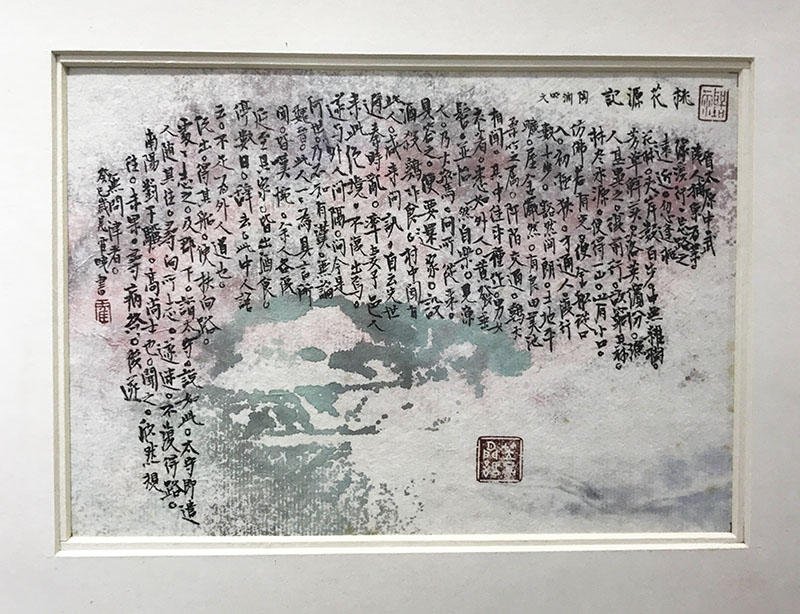 桃花源記 陶淵明文
晉太原中。武
陵人捕魚為業。
緣溪行。忘路之
遠近。忽逢桃
花林。夾岸數百步。中無雜樹。
芳草鮮美。落英繽紛。漁
人甚異之。復前行。欲窮其林。
林盡水源。便得一山。山有小口。
仿佛若有光。便舍船從口
入。初極狹。才通人。復行
數十步。豁然開朗。土地平
曠。屋舍儼然。有良田美池
桑竹之屬。阡陌交通。雞犬
相聞。其中往來種作。男女
衣著。悉如外人。黃髮垂
髫。並怡然自樂。見漁
人。乃大驚。問所從來。
具答之。便要還家。設
酒殺雞作食。村中聞有
此人。咸來問訊。自云先世
避秦時亂。率妻子邑人
來此絕境。不復出焉。
遂與外人間隔。問今是
何世。乃不知有漢。無論
魏晉。此人一一為具言所
聞。皆嘆惋。餘人各復
延至其家。皆出酒食。
停數日。辭去。此中人語
云。不足為外人道也。
既出。得其船。便扶向路。
處處志之。及郡下。詣太守。說如此。太守即遣
人隨其往。尋向所志。遂迷。不復得路。
南陽劉子驥。高尚士也。聞之。欣然規
往。未果。尋病終。後遂
無問津者。
癸巳歲 書